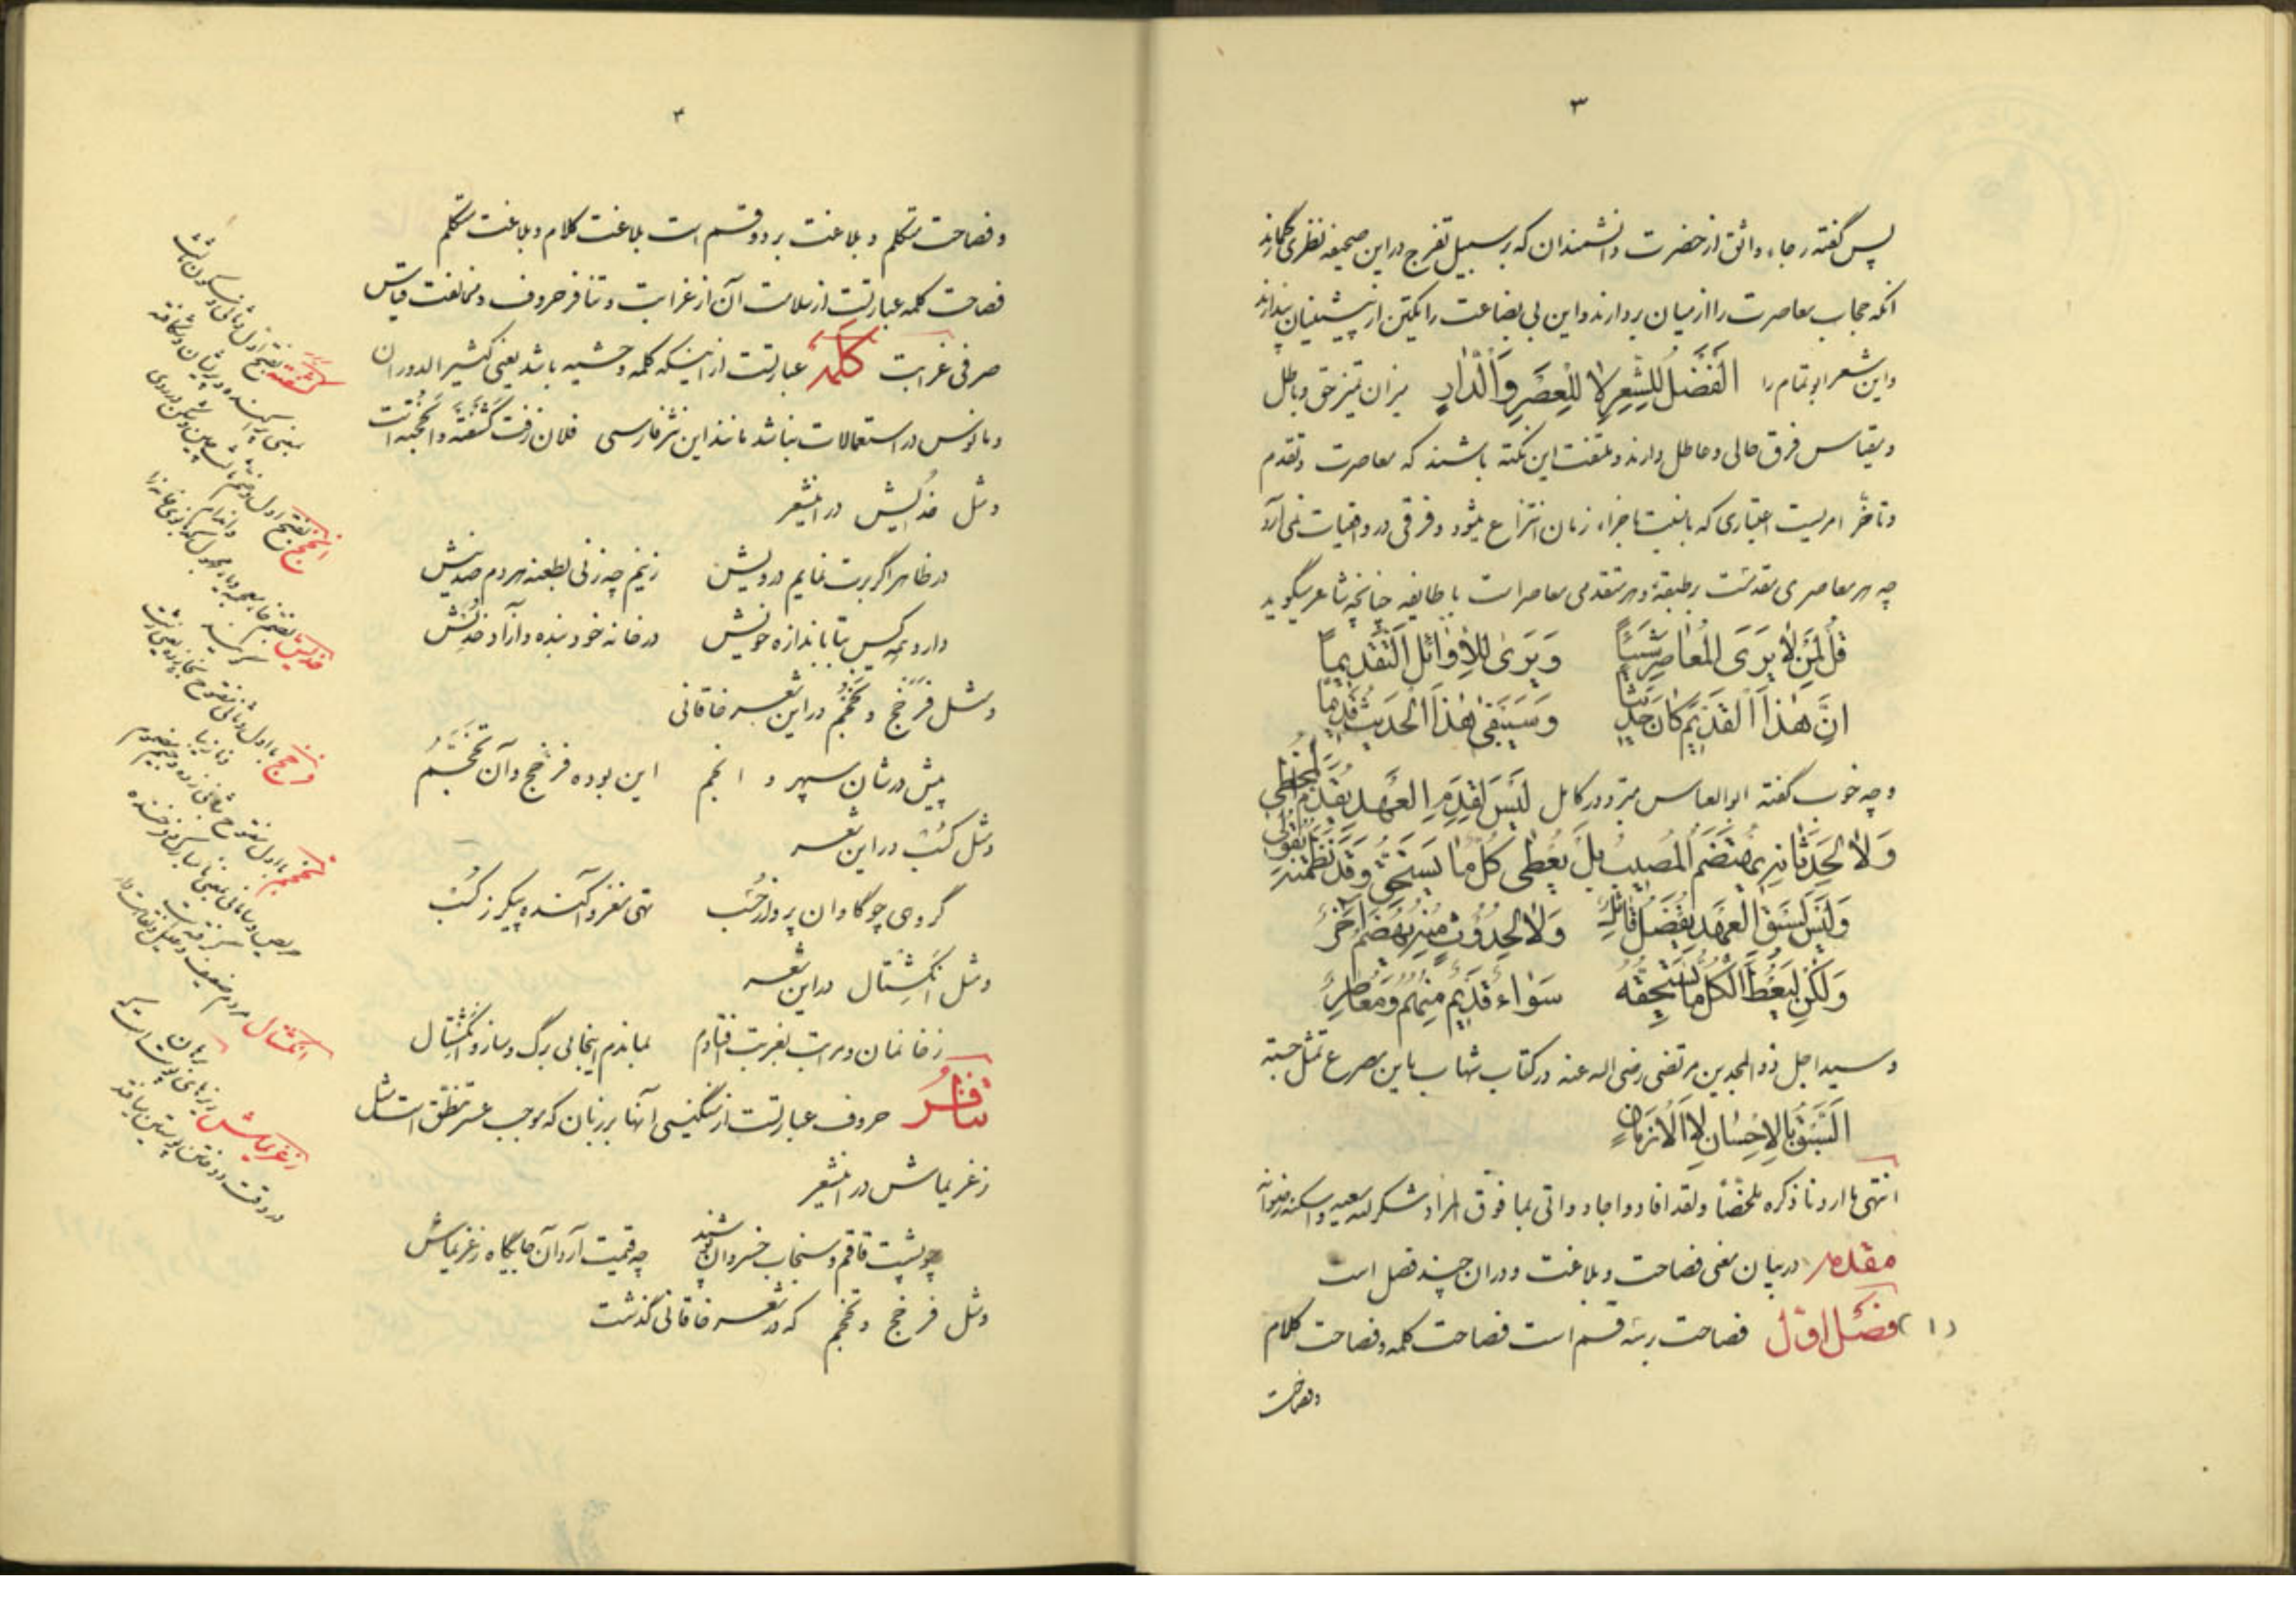 ۳
پس گفته رجاء واثق از حضرت دانشمندان که بر سبیل تفرج در این صحیفه نظری گمارند
آنکه حجاب معاصرت را از میان بردارند و این بی بضاعت را یکتن از پیشینیان پندارند
و این شعر ابو تمام را الْفَضْلُ لِلشِّعْرِ لَا لِلْعَصْرِ وَالدَّارِ میزان تمیز حق و باطل
و مقیاس فرق حالی و عاطل دارند و ملتفت این نکته باشند که معاصرت و تقدم
و تأخّر امریست اعتباری که بالنسبت باجزاء زمان انتزاع میشود و فرقی در واقعیات نمی آرد
چه هر معاصری مقدمست بر طبقهٔ و هر متقدمی معاصر است با طایفه چنانچه شاعر میگوید
قُلْ لِمَنْ لَا يَرَى الْمُعَاصِرَ شَيْئًا وَيَرَى لِلْأَوَائِلِ التَّقْدِيمَا
إِنَّ هٰذَا الْقَدِيمَ كَانَ حَدِيثًا وَسَيَبْقَى هٰذَا الْحَدِيثُ قَدِيمًا
و چه خوب گفته ابوالعباس مبرّد در کامل لَيْسَ لِقِدَمِ الْعَهْدِ يُقَدَّمُ الْمُخْطِي
وَلَا لِحَدَثَانِهِ يُهْتَضَمُ الْمُصِيبُ بَلْ يُعْطَى كُلٌّ مَا يَسْتَحِقُّ وَقَدْ نَظَمْتُهُ بِقَوْلِي
وَلَيْسَ لِسَبْقِ الْعَهْدِ يُفَضَّلُ قَائِلٌ وَلَا لِحُدُوثٍ مِنْهُ يُهْضَمُ آخَرُ
وَلٰكِنْ لِيُعْطَ الْكُلُّ مَا يَسْتَحِقُّهُ سَوَاءٌ قَدِيمٌ مِنْهُمُ وَمُعَاصِرُ
و سید اجل ذوالمجدین مرتضی رضی الله عنه در کتاب شهاب باین مصرع تمثل جسته
السَّبْقُ بِالْإِحْسَانِ لَا الْأَزْمَانِ
انتهی ما اردنا ذکره ملخصًا ولقد افاد و اجاد و اتی بما فوق المراد شکر الله سعیه و اسکنه رضوانه
مقدمه در بیان معنی فصاحت و بلاغت و در ان چند فصل است
(۱) فصل اول فصاحت بر سه قسم است فصاحت کلمه و فصاحت کلام
وفصاحت
۳
و فصاحت متکلم و بلاغت بر دو قسم است بلاغت کلام و بلاغت متکلم
فصاحت کلمه عبارتست از سلامت آن از غرابت و تنافر حروف و مخالفت قیاس
صرفی غرابت کلمه عبارتست از اینکه کلمه وحشیه باشد یعنی کثیر الدوران
و مانوس در استعمالات نباشد مانند این نثر فارسی فلان زفت کشفته و انجخیده است
و مثل خدیش در اینشعر
در ظاهر اگر برت نمایم درویش زینم چه زنی بطعنه هر دم صد نیش
دارد همه کس بتا باندازه خویش در خانه خود بنده و آزاد خدیش
و مثل فرخج و تخجم در این شعر خاقانی
پیش در شان سپهر و انجم این بوده فرخج و آن تخجم
و مثل کنب در این شعر
گروهی چو گاوان پروار خسب تهی مغز و آکنده پیکر ز کنب
و مثل انکشتال در این شعر
ز خانمان و مراتب بغربت افتادم بماندم اینجا بی برگ و ساز و انکشتال
تنافر حروف عبارتست از سنگینی آنها بر زبان که موجب عسر تنطق است مثل
زغریماش در اینشعر
چو پشت قاقم و سنجاب خسروان پوشند چه قیمت آرد آن جایگاه زغریماش
و مثل فرخج و تخجم که در شعر خاقانی گذشت
کشفته بفتح اول و ثانی و سکون
یعنی پراکنده و پریشان و شکافته
انجخ بفتح اول و ضم
و اندام
خدیش بضم خا معجمه و یاء مجهول کدبانوی خانه را
گویند
فرخج
و نازیبا
تخجم با اول مفتوح
حریص و
انکشتال مردم ضعیف و علیل
زغریماش ریزهای پوست است که
در وقت دوختن پوستین بیافتد